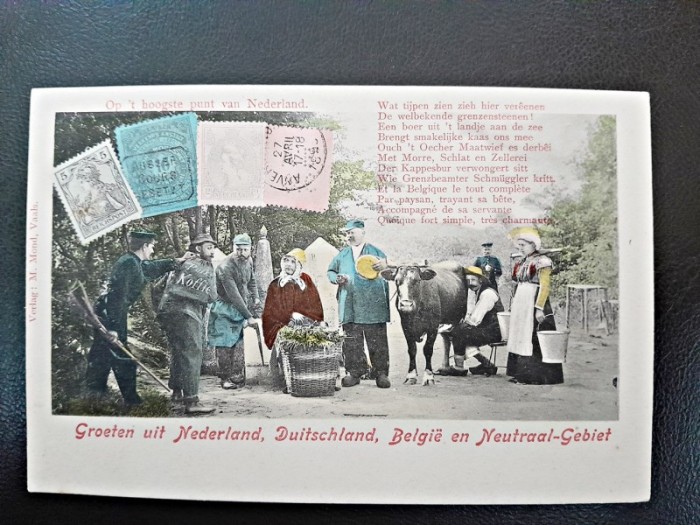 Op 't hoogste punt van Nederland.
Wat tijpen zien zieh hier vereenen
De welbekende grenzensteenen!
Een boer uit 't landje aan de zee
Brengt smakelijke kaas ons mee
Ouch 't Oecher Maatwief es derbei
Met Morre, Schlat en Zellerei
Der Kappesbur verwongert sitt
Wie Grenzbeamter Schmüggler kritt.
Et la Belgique le tout complète
Par paysan, trayant sa bête,
Accompagné de sa servante
Quoique fort simple, très charmante
5
27
AVRIL
17-18
ANVE
Koffie
Verlag: M. Mond, Vaals.
Groeten uit Nederland, Duitschland, België en Neutraal-Gebiet